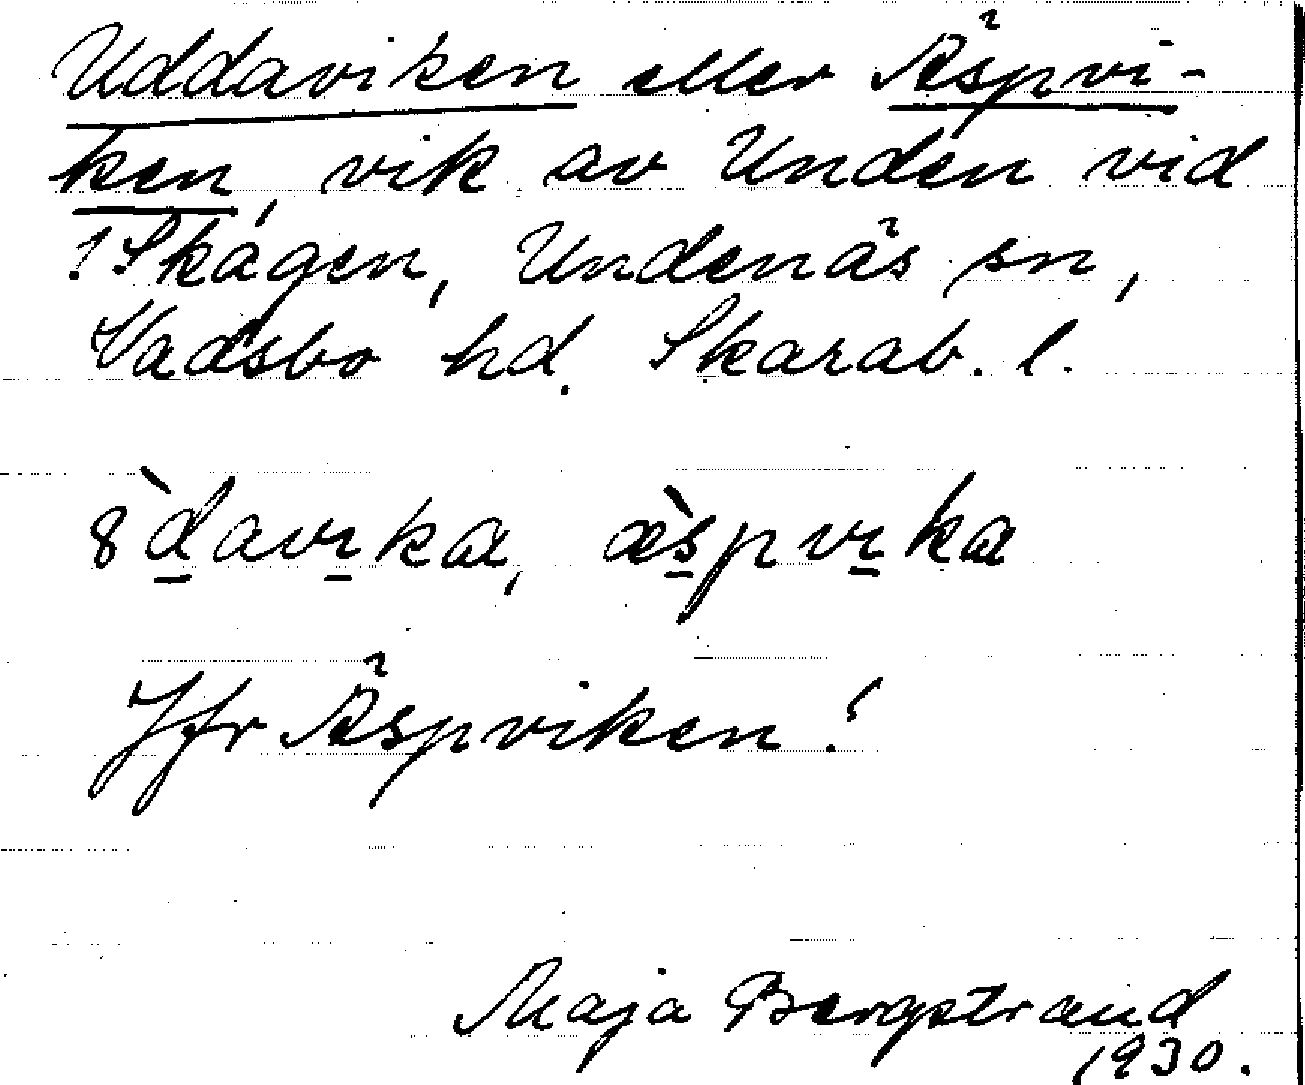 Uddaviken eller Äspvi-
ken, vik av Unden vid
! Skagen, Undenäs sn,
Vadsbo hd. Skarab. l.
8̀davıka, æ̀spvıka
Jfr Äspviken!
Maja Bergstrand
1930.